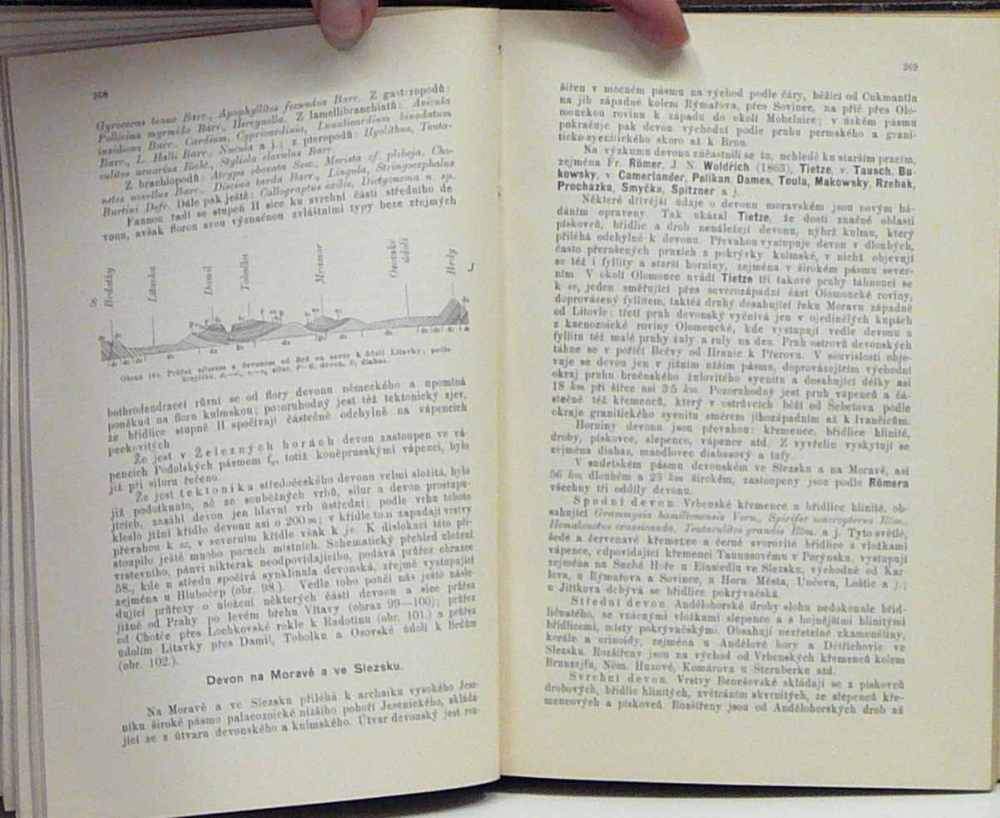 268
Gyroceras tenue Barr., Aphyllites fecundus Barr. Z gastropodů:
Barr. Z lamellibranchiatů: Avicula
Barr., Cardium, Cypricardinia,
Barr., L. Halli Barr., Nucula a j.; z pteropodů: Hyolithus,
Barr.
Z brachiopodů: Atrypa
Barr., Lingula, Stringocephalus
Burtini Defr. Dále pak ještě:
Faunou řadí se stupeň H sice ku svrchní části středního de
vonu, avšak florou svou význačnou zvláštními typy beze zřejmých
Radotky
Litavka
Damil
Tobolka
Mramor
Osovské
údolí
Brdy
J
Obraz 102. Průřez silurem a devonem od Brd na sever k údolí Litavky; podle
bothrodendraceí různí se od flory devonu německého a upomíná
poněkud na floru kulmskou; pozoruhodný jest též tektonický zjev,
že břidlice stupně H spočívají částečně odchylně na vápencích
peckovitých.
Že jest v Železných horách devon zastoupen ve vá-
pencích Podolských pásmem f, totiž koněpruskými vápenci, bylo
již při siluru řečeno.
Že jest tektonika středočeského devonu velmi složitá, bylo
již podotknuto, než ze souběžných vrhů, silur a devon prostupu-
jících, zasáhl devon jen hlavní vrh ústřední; podle vrhu tohoto
kleslo jižní křídlo devonu asi o 200 m; v křídle tom zapadají vrstvy
převahou k sz, v severním křídle však k jv. K dislokaci této při-
stoupilo ještě mnoho poruch místních. Schematický přehled uložení
vrstevního, pánvi nikterak neodpovídajícího, podává průřez obrazce
58., kde u středu spočívá synklinala devonská, zřejmě vystupující
zejména u Hlubočep (obr. 98.). Vedle toho poučí nás ještě násle-
dující průřezy o uložení některých částí devonu a sice průřez
jižně od Prahy po levém břehu Vltavy (obraz 99—100); průřez
od Chotče přes Lochkovské rokle k Radotínu (obr. 101.) a průřez
údolím Litavky přes Damil, Tobolku a Osovské údolí k Brdům
(obr. 102.).
Devon na Moravě a ve Slezsku.
Na Moravě a ve Slezsku přiléhá k archaiku vysokého Jese-
níku široké pásmo palaeozoické nižšího pohoří Jesenického, skláda-
jící se z útvaru devonského a kulmského. Útvar devonský jest roz-
269
šířen v mocném pásmu na východ podle čáry, běžící od Cukmantlu
na jih západně kolem Rýmařova, přes Sovinec, na příč přes Olo-
mouckou rovinu k západu do okolí Mohelnice; v úzkém pásmu
pokračuje pak devon východní podle pruhu permského a grani-
ticko-syenitického skoro až k Brnu.
Na výzkumu devonu zúčastnili se tu, nehledě ku starším pracím,
zejména Fr. Römer, J. N. Woldřich (1863), Tietze, v. Tausch, Bu-
kowsky, v. Camerlander, Pelikan, Dames, Toula, Makowsky, Rzehak,
Procházka, Smyčka, Spitzner a j.
Některé dřívější údaje o devonu moravském jsou novým bá-
dáním opraveny. Tak ukázal Tietze, že dosti značné oblasti
pískovců, břidlic a drob nenáležejí devonu, nýbrž kulmu, který
přiléhá odchylně k devonu. Převahou vystupuje devon v dlouhých,
často přerušených pruzích z pokrývky kulmské, v nichž objevují
se též i fyllity a starší horniny, zejména v širokém pásmu sever-
ním. V okolí Olomouce uvádí Tietze tři takové pruhy táhnoucí se
k sv, jeden směřující přes severozápadní část Olomoucké roviny,
doprovázený fyllitem, taktéž druhý dosahující řeku Moravu západně
od Litovle; třetí pruh devonský vyčnívá jen v ojedinělých kupách
z kaenozoické roviny Olomoucké, kde vystupují vedle devonu a
fyllitu též malé pruhy žuly a ruly na den. Pruh ostrovů devonských
táhne se v poříčí Bečvy od Hranic k Přerovu. V souvislosti obje-
vuje se devon jen v jižním užším pásmu, doprovázejícím východní
okraj pruhu brněnského žulovitého syenitu a dosahující délky asi
18 km při šířce asi 3·5 km. Pozoruhodný jest pruh vápenců a čá-
stečně též křemenců, který v ostrůvcích běží od Šebetova podle
okraje granitického syenitu směrem jihozápadním až k Ivančicům.
Horniny devonu jsou převahou: křemence, břidlice klinité,
droby, pískovce, slepence, vápence atd. Z vyvřelin vyskytují se
zejména diabas, mandlovec diabasový a tufy.
V sudetském pásmu devonském ve Slezsku a na Moravě, asi
56 km dlouhém a 25 km širokém, zastoupeny jsou podle Römera
všechny tři oddíly devonu.
Spodní devon. Vrbenské křemence a břidlice klinité, ob-
sahující Grammysia hamiltonensis Vern., Spirifer macropterus Röm.,
Homalonotus crassicauda, Tentaculites grandis Röm. a j. Tyto světlé,
šedé a červenavé křemence a černé svorovité břidlice s vložkami
vápence, odpovídající křemenci Taunusovému v Porýnsku, vystupují
zejména na Suché Hoře u Einsiedlu ve Slezsku, východně od Kar-
lova, u Rýmařova a Sovince, u Horn. Města, Uničova, Loštic a j.;
u Jiříkova dobývá se břidlice pokrývačská.
Střední devon. Andělohorské droby slohu nedokonale břid-
ličnatého, se vzácnými vložkami slepence a s hojnějšími klinitými
břidlicemi, místy pokrývačskými. Obsahují nezřetelné zkameněliny,
korále a crinoidy, zejména u Andělové hory a Dětřichovic ve
Slezsku. Rozšířeny jsou na východ od Vrbenských křemenců kolem
Braunsejfu, Něm. Huzové, Komárova u Šternberka atd.
Svrchní devon. Vrstvy Benešovské skládají se z pískovců
drobových, břidlic klinitých, zvětráním skvrnitých, ze slepenců kře-
mencových a pískovců. Rozšířeny jsou od Andělohorských drob až